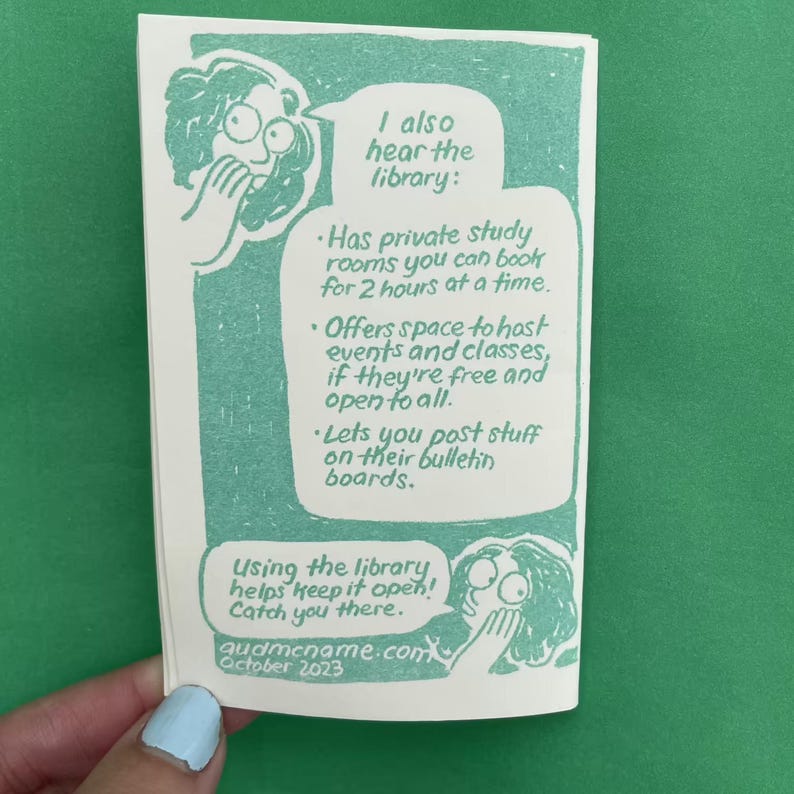 I also
hear the
library:
• Has private study
rooms you can book
for 2 hours at a time.
• Offers space to host
events and classes,
if they're free and
open to all.
• Lets you post stuff
on their bulletin
boards.
Using the library
helps keep it open!
Catch you there.
audmcname.com
October 2023